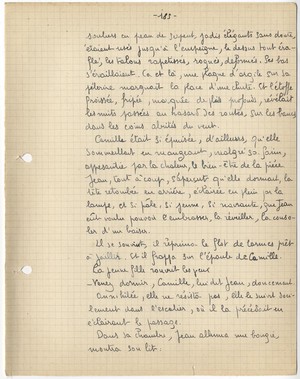 -183-
souliers en peau de serpent, jadis élégants sans doute,
étaient usés jusqu'à l'empeigne, le dessus tout éra-
flé, les talons rapetissés, rognés, déformés. Ses bas
s'éraillaient. Ça et là, une plaque d'argile sur sa
pèlerine marquait la place d'une chute. Et l'étoffe
froissée, fripée, marquée de plis profonds, révélait
les nuits passées au hasard des routes, sur les bancs
dans les coins abrités du vent.
Camille était si épuisée, d'ailleurs, qu'elle
sommeillait en mangeant, malgré sa faim,
appesantie par la chaleur, le bien-être de la pièce.
Jean, tout à coup, s'aperçut qu'elle dormait, la
tête retombée en arrière, éclairée en plein par la
lampe, et si pâle, si jeune, si navrante, que Jean
eût voulu pouvoir l'embrasser, la réveiller, la conso-
ler d'un baiser.
Il se souvint, il réprima le flot de larmes prêt
à jaillir. Et il frappa sur l'épaule de Camille.
La jeune fille rouvrit les yeux.
- Venez dormir, Camille, lui dit Jean, doucement.
Annihilée, elle ne résista pas, elle le suivit doci-
lement dans l'escalier, où il la précédait en
éclairant le passage.
Dans sa chambre, Jean alluma une bougie,
montra son lit.